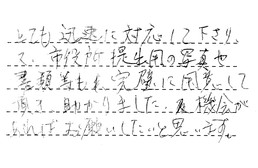 とても迅速に対応して下さり、
て、市役所提出用の写真や
書類等もね完璧に用意して
頂き助かりました。又機会が
あればお願いしたいと思います。